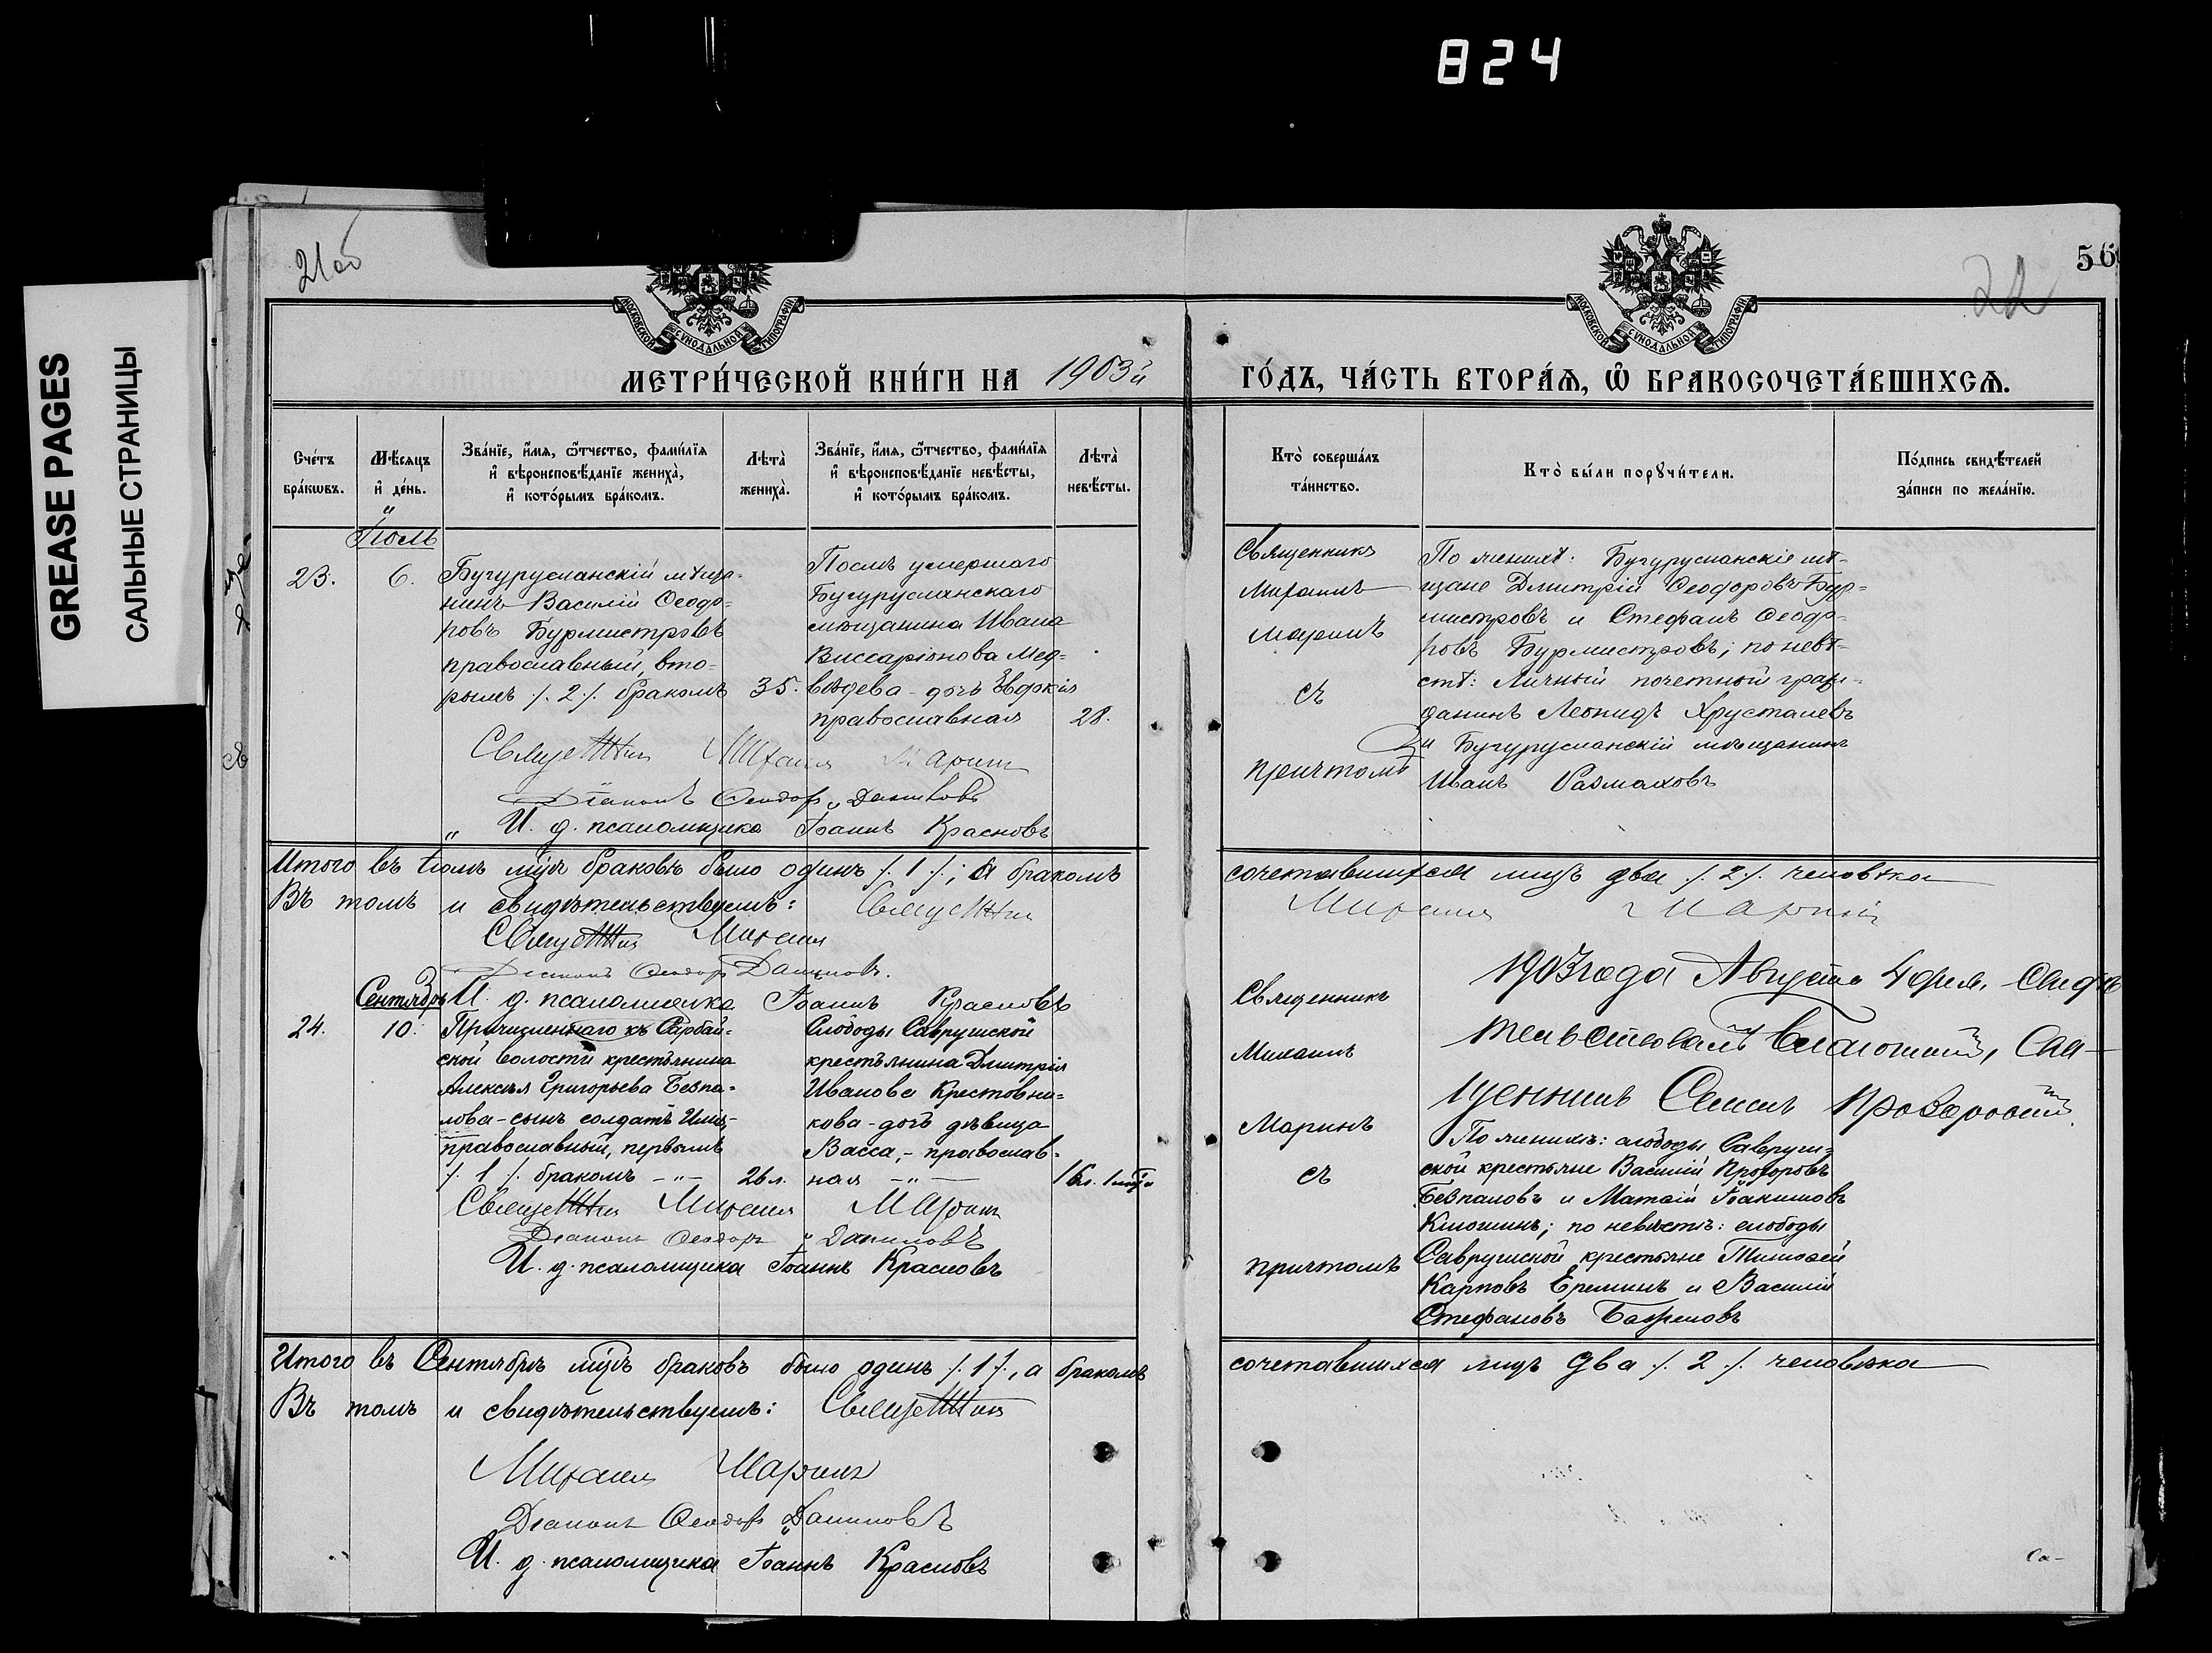 824
GREASE PAGES
САЛЬНЫЕ СТРАНИЦЫ
21об
22
56
МОСКОВСКОЙ СѴНОДАЛЬНОЙ ТИПОГРАФІИ
МОСКОВСКОЙ СѴНОДАЛЬНОЙ ТИПОГРАФІИ
МЕТРИ́ЧЕСКОЙ КНИ́ГИ НА 1903й
ГО́ДЪ, ЧА́СТЬ ВТОРА́Ѧ, Ѡ БРАКОСОЧЕТА́ВШИХСѦ.
Сче́тъ бра́кѡвъ.
Мѣ́сяцъ и҆ де́нь.
Зва́нїе, и҆́мѧ, ѻ҆́тчество, фами́лїѧ
и҆ вѣроисповѣ́данїе жениха̀,
и҆ кото́рымъ бра́комъ.
Лѣта̀ жениха̀.
Зва́нїе, и҆́мѧ, ѻ҆́тчество, фами́лїѧ
и҆ вѣроисповѣ́данїе невѣ́сты,
и҆ кото́рымъ бра́комъ.
Лѣта̀ невѣ́сты.
Кто̀ соверша́лъ та́инство.
Кто̀ бы́ли порꙋчи́тели.
По́дпись свидѣ́телей за́писи по жела́нїю.
Іюль
23.
6.
Бугурусланскій мѣща-
нинъ Василій Ѳеодо-
ровъ Бурмистровъ
православный, вто-
рымъ /. 2 /. бракомъ
35.
Послѣ умершаго
Бугурусланскаго
мѣщанина Ивана
Виссаріонова Мед-
вѣдева - дочь Евдокія
православная
28.
Священникъ
Михаилъ
Маринъ
съ
причтомъ
По женихѣ: Бугурусланскіе мѣ-
щане Дмитрій Ѳеодоровъ Бур-
мистровъ и Стефанъ Ѳеодо-
ровъ Бурмистровъ; по невѣ-
стѣ: Личный почетный граж-
данинъ Леонидъ Хрусталевъ
и Бугурусланскій мѣщанинъ
Иванъ Размаховъ
Михаилъ Маринъ
Діаконъ Ѳеодоръ Даниловъ
И. д. псаломщика Іоаннъ Красновъ
Итого въ Іюлѣ мцѣ браковъ было одинъ /. 1 /.; а бракомъ
сочетавшихся лицъ два /. 2 /. человѣка
Въ томъ и свидѣтельствуемъ:
Михаилъ Маринъ
Діаконъ Ѳеодоръ Даниловъ.
И. д. псаломщика Іоаннъ Красновъ
1903 года Августа 4 дня. Свидѣ
тельствовалъ Благочинный, Свя-
щенникъ
Сентябрь
24.
10.
Причисленнаго къ Сарбай-
ской волости крестьянина
Алексѣя Григорьева Безпа-
лова - сынъ солдатъ
православный, первымъ
/. 1 /. бракомъ
26 л.
Слободы Саврушской
крестьянина Дмитрія
Иванова Крестовни-
кова - дочь дѣвица
Васса, - православ-
ная
16 л.
Священникъ
Михаилъ
Маринъ
съ
причтомъ
По женихѣ: слободы Савруш-
ской крестьяне Василій Прохоровъ
Безпаловъ и Матѳій Іоакимовъ
по невѣстѣ: слободы
Саврушской крестьяне Тимоѳей
Карповъ Ереминъ и Василій
Стефановъ
Михаилъ Маринъ
Діаконъ Ѳеодоръ Даниловъ
И. д. псаломщика Іоаннъ Красновъ
Итого въ Сентябрѣ мцѣ браковъ было одинъ /. 1 /., а бракомъ
сочетавшихся лицъ два /. 2 /. человѣка
Въ томъ и свидѣтельствуемъ:
Михаилъ Маринъ
Діаконъ Ѳеодоръ Даниловъ
И. д. псаломщика Іоаннъ Красновъ
Со-